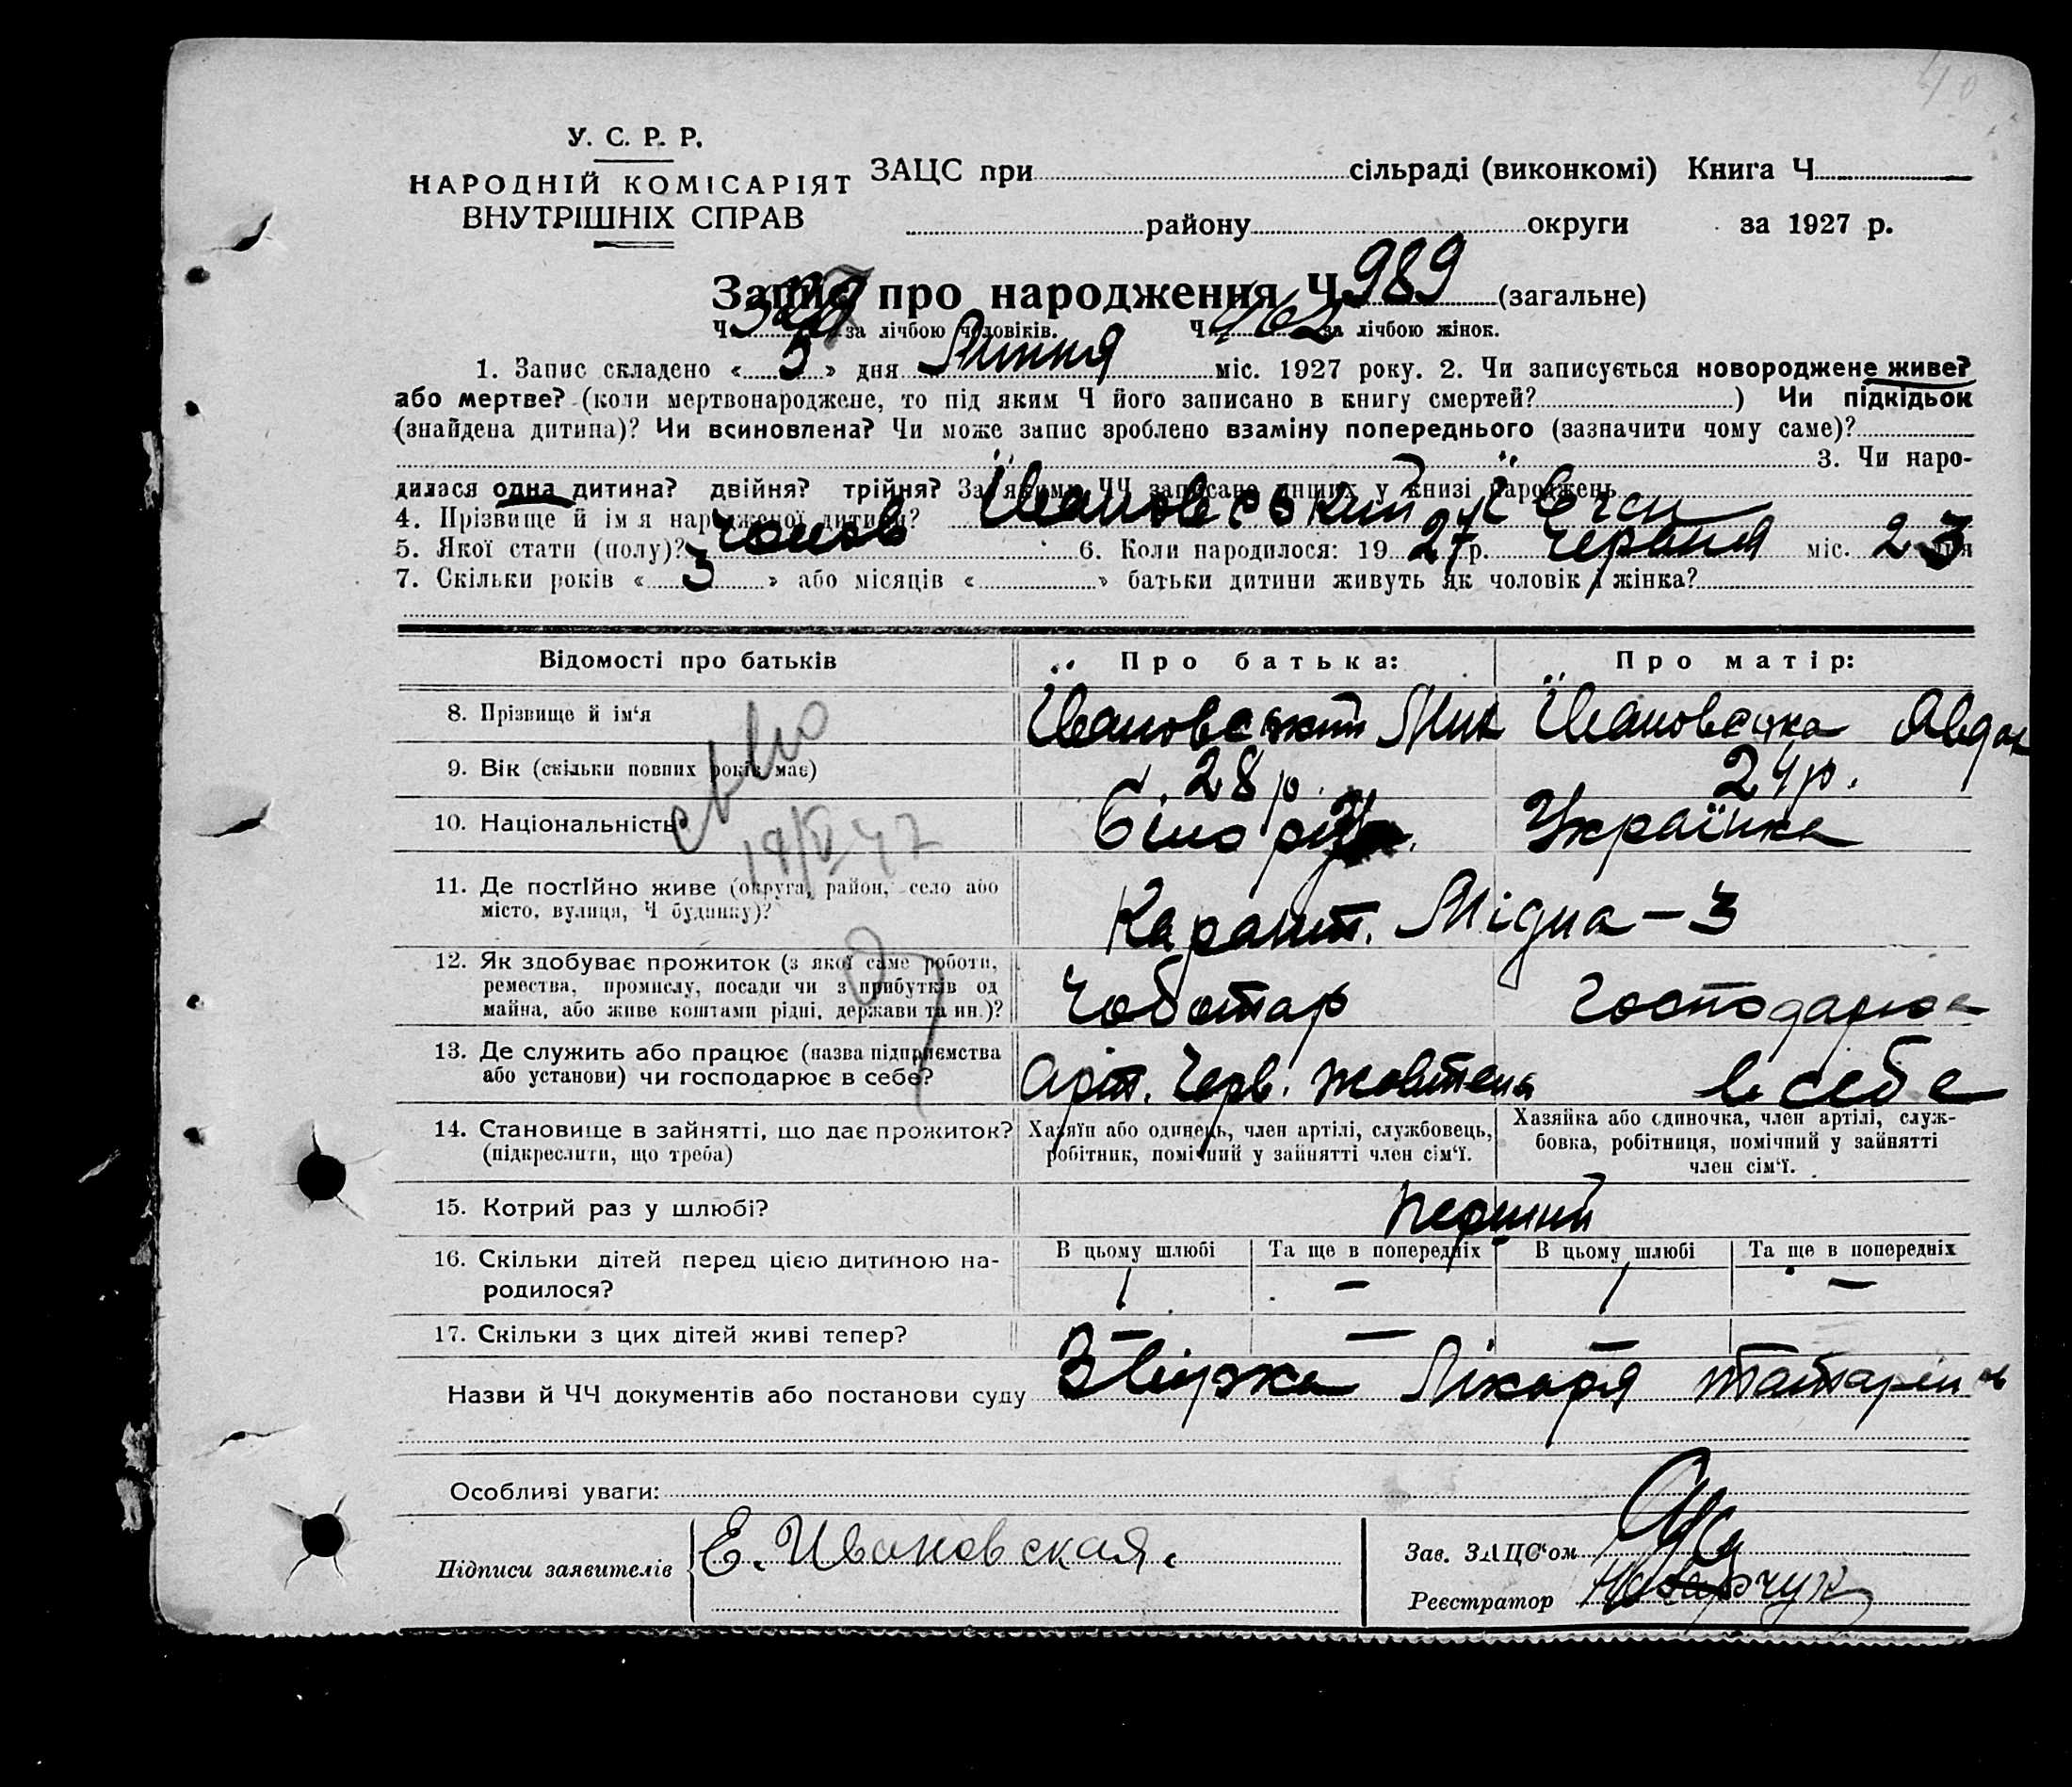 У. С. Р. Р.
НАРОДНІЙ КОМІСАРІЯТ
ВНУТРІШНІХ СПРАВ
ЗАЦС при сільраді (виконкомі) Книга Ч.
району округи за 1927 р.
Запис про народження Ч. 989 (загальне)
Ч. за лічбою чоловіків. Ч. 462 за лічбою жінок.
1. Запис складено « 5 » дня Липня міс. 1927 року. 2. Чи записується новороджене живе?
або мертве? (коли мертвонароджене, то під яким Ч його записано в книгу смертей? ) Чи підкідьок
(знайдена дитина)? Чи всиновлена? Чи може запис зроблено взаміну попереднього (зазначити чому саме)?
3. Чи наро-
дилася одна дитина? двійня? трійня? За якими ЧЧ записано инших у книзі народжень
4. Прізвище й ім'я народженої дитини? Івановський
5. Якої стати (полу)? чолов 6. Коли народилося: 19 27 р. Червня міс. 23 дня
7. Скільки років « 3 » або місяців « » батьки дитини живуть як чоловік і жінка?
Відомості про батьків
Про батька:
Про матір:
8. Прізвище й ім'я
Івановський Мик
Івановська Явдок
9. Вік (скільки повних років має)
28 р.
24 р.
10. Національність
Білору
Українка
18/V 47
11. Де постійно живе (округа, район, село або
місто, вулиця, Ч будинку)?
Карант. Мідна - 3
12. Як здобуває прожиток (з якої саме роботи,
ремества, промислу, посади чи з прибутків од
майна, або живе коштами рідні, держави та ин.)?
Чоботар
Господарює
13. Де служить або працює (назва підприємства
або установи) чи господарює в себе?
Арт. Черв. Жовтень
в себе
14. Становище в зайнятті, що дає прожиток?
(підкреслити, що треба)
Хазяїн або одинець, член артілі, службовець,
робітник, помічний у зайнятті член сім'ї.
Хазяйка або одиночка, член артілі, служ-
бовка, робітниця, помічний у зайнятті
член сім'ї.
15. Котрий раз у шлюбі?
перший
16. Скільки дітей перед цією дитиною на-
родилося?
В цьому шлюбі
Та ще в попередніх
В цьому шлюбі
Та ще в попередніх
1 - 1 -
17. Скільки з цих дітей живі тепер?
- - -
Назви й ЧЧ документів або постанови суду Звістка Лікаря Татарінов
Особливі уваги:
Підписи заявителів
Е. Ивановская.
Зав. ЗАЦС'ом
Реєстратор